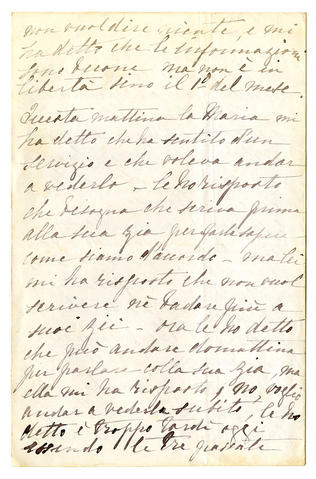 non vuol dire niente, e mi
ha detto che le informazioni
sono buone ma non è in
libertà sino il 1º del mese.
Questa mattina la Maria mi
ha detto che ha sentito d'un
servizio e che voleva andar
a vederlo - le ho risposto
che bisogna che scriva prima
alla sua zia per farle sapere
come siamo d'accordo - ma lei
mi ha risposto che non vuol
scrivere nè badare più a
suoi zii - ora le ho detto
che può andare domattina
per parlare colla sua zia, ma
ella mi ha risposto, no, voglio
andar a vederla subito, le ho
detto è troppo tardi oggi
essendo le tre passate